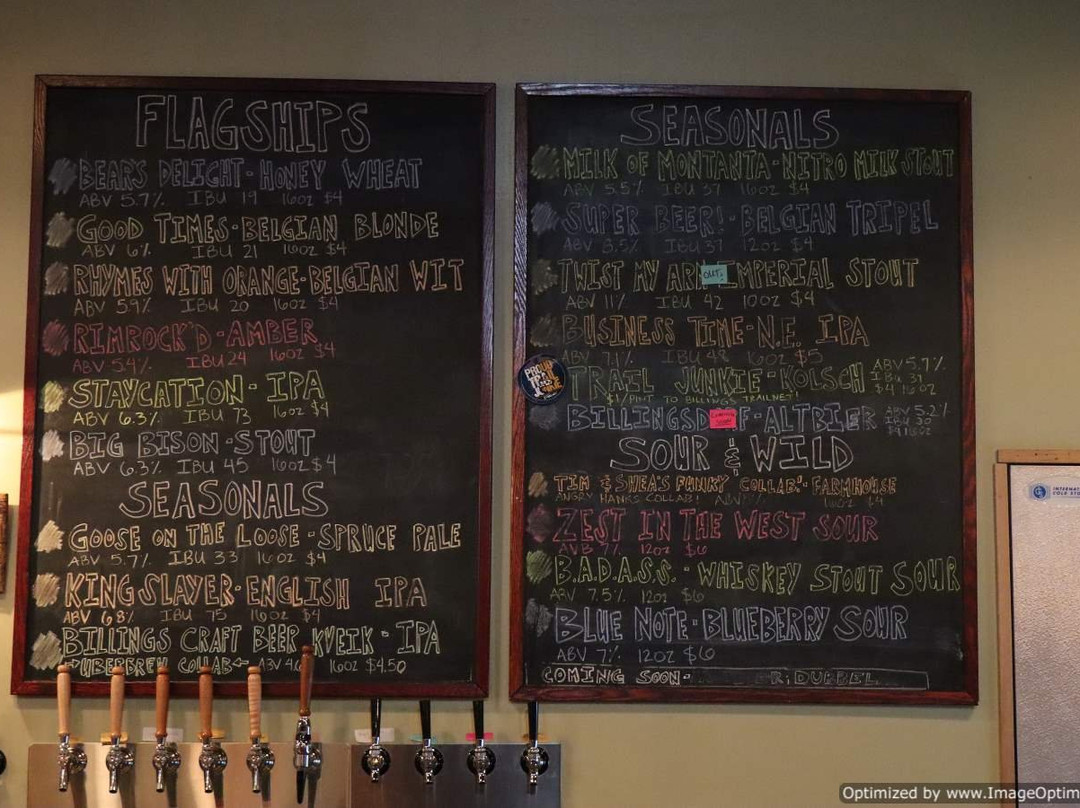 FLAGSHIPS
BEARS DELIGHT - HONEY WHEAT
ABV 5.7% IBU 19 16OZ $4
GOOD TIMES - BELGIAN BLONDE
ABV 6% IBU 21 16OZ $4
RHYMES WITH ORANGE - BELGIAN WIT
ABV 5.9% IBU 20 16OZ $4
RIMROCK'D - AMBER
ABV 5.4% IBU 24 16OZ $4
STAYCATION - IPA
ABV 6.3% IBU 73 16OZ $4
BIG BISON - STOUT
ABV 6.3% IBU 45 16OZ $4
SEASONALS
GOOSE ON THE LOOSE - SPRUCE PALE
ABV 5.7% IBU 33 16OZ $4
KINGSLAYER - ENGLISH IPA
ABV 6.8% IBU 75 16OZ $4
BILLINGS CRAFT BEER KVEIK - IPA
UBERBREW COLLAB ABV 16OZ $4.50
SEASONALS
MILK OF MONTANTA - NITRO MILK STOUT
ABV 5.5% IBU 37 16OZ $4
SUPER BEER! - BELGIAN TRIPEL
ABV 8.5% IBU 37 12OZ $4
TWIST MY ARM IMPERIAL STOUT
OUT!
ABV 11% IBU 42 10OZ $4
BUSINESS TIME - N.E. IPA
ABV 7.1% IBU 48 16OZ $5
TRAIL JUNKIE - KOLSCH ABV 5.7%
IBU 31
$4 16OZ
$1/PINT TO BILLINGS TRAILNET!
PROUD
BILLINGSD F - ALTBIER ABV 5.2%
IBU 30
SOUR & WILD
TIM & SHEA'S FUNKY "COLLAB" - FARMHOUSE
ANGRY HANKS COLLAB! 16OZ $4
ZEST IN THE WEST SOUR
AVB 7% 12OZ $6
B.A.D.A.S.S. - WHISKEY STOUT SOUR
ABV 7.5% 12OZ $6
BLUE NOTE - BLUEBERRY SOUR
ABV 7% 12OZ $6
COMING SOON - R; DUBBEL
INTERNAT
COLD STO
Optimized by www.ImageOptim